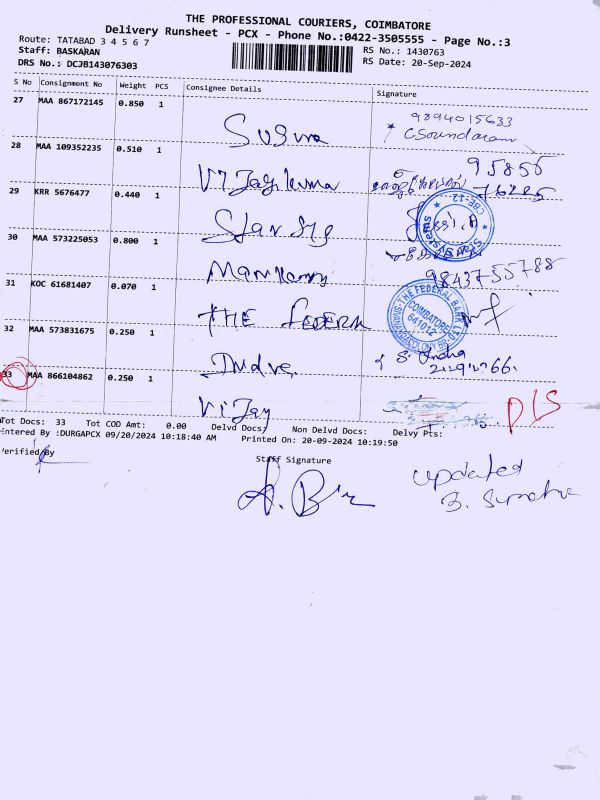 THE PROFESSIONAL COURIERS, COIMBATORE
Delivery Runsheet - PCX - Phone No.:0422-3505555 - Page No.:3
Route: TATABAD 3 4 5 6 7
RS No.: 1430763
Staff: BASKARAN
RS Date: 20-Sep-2024
DRS No.: DCJB143076303
S No Consignment No Weight PCS Consignee Details Signature
27 MAA 867172145 0.850 1
9894015633
Susma * C Soundaram
28 MAA 109352235 0.510 1
95855
Vijayakuma
29 KRR 5676477 0.440 1
Star Sys
30 MAA 573225053 0.800 1
Manikam
9843755788
31 KOC 61681407 0.070 1
THE FEDERAL BANK LTD
COIMBATORE
641012
THE FEDERA
32 MAA 573831675 0.250 1
S. Indra
Indra
33 MAA 866104862 0.250 1
Vijay
DLS
Tot Docs: 33 Tot COD Amt: 0.00 Delvd Docs: Non Delvd Docs: Delvy Pts:
Entered By :DURGAPCX 09/20/2024 10:18:40 AM Printed On: 20-09-2024 10:19:50
Verified By
Staff Signature
updated